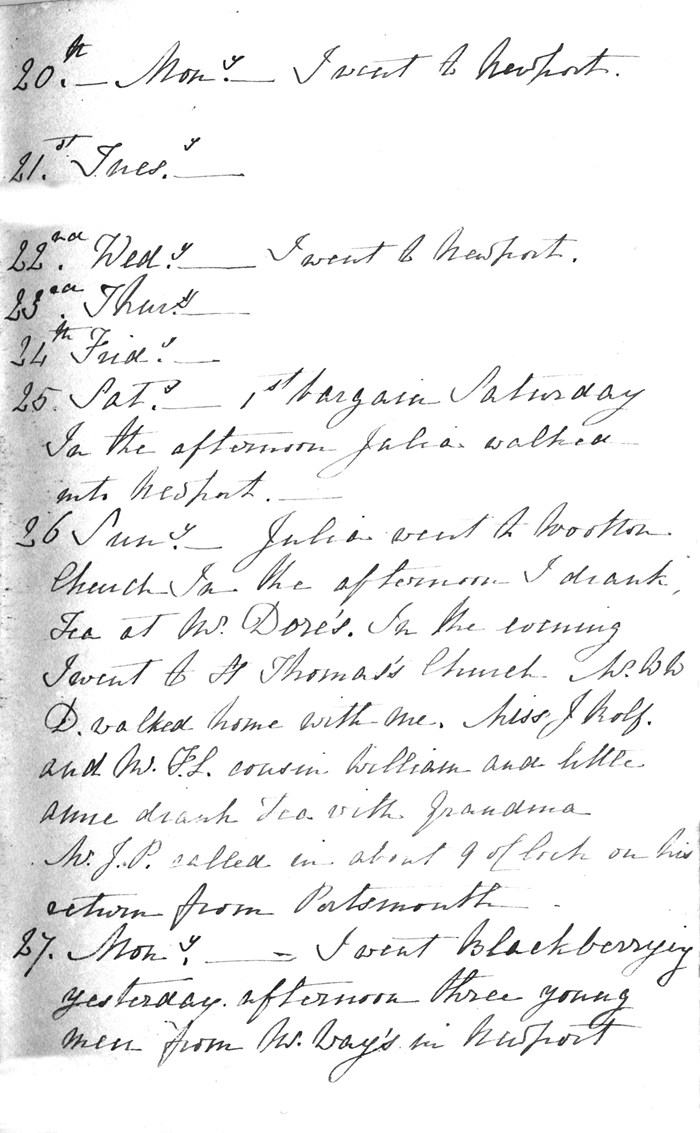 20.th — Mon.y — I went to Newport.
21.st Tues.y —
22.nd Wed.y — I went to Newport.
23.rd Thurs.y —
24th Frid.y —
25. Sat.y — 1st bargain Saturday
In the afternoon Julia walked
into Newport. —
26 Sun.y — Julia went to Wootton
Church In the afternoon I drank
Tea at Mr. Dore's. In the evening
I went to St Thomas's Church Mr. W W
D. walked home with me. Miss J Rolf.
and Mr. F.L. cousin William and little
anne drank Tea with Grandma
Mr. J.P. called in about 9 o'Clock on his
return from Portsmouth
27. Mon.y. — I went Blackberrying
yesterday afternoon three young
men from Mr. Way's in Newport